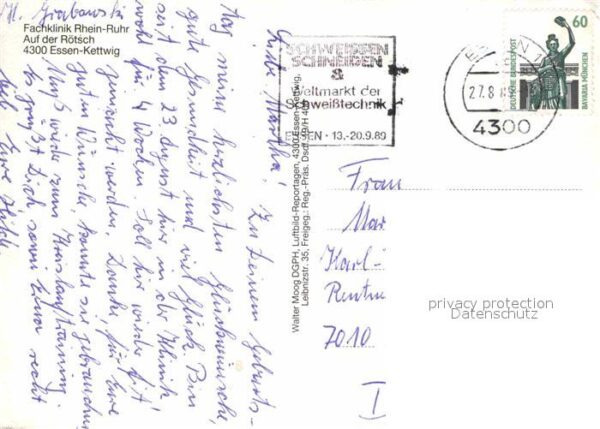 H. Grabowski
Fachklinik Rhein-Ruhr
Auf der Rötsch
4300 Essen-Kettwig
Liebe Martha! Zu Deinem Geburts-
tag meine herzlichsten Glückwünsche,
gute Gesundheit und viel Glück. Bin
seit dem 23. August hier in der Klinik,
wohl für 4 Wochen. Soll hier wieder fit
gemacht werden. Danke, für Eure
guten Wünsche, konnte sie gebrauchen
Muß wieder zum Kreislauftraining
Es grüßt Dich sowie Euna recht
lieb Eure
Walter Moog DGPH, Luftbild-Reportagen, 4300 Essen-Kettwig,
Leibnizstr. 35, Freigeg.: Reg.-Präs. Dsdf. 19/H 40
SCHWEISSEN
SCHNEIDEN
&
Weltmarkt der
Schweißtechnik
ESSEN · 13.-20.9.89
ESSEN 1
27.8.89
4300
60
DEUTSCHE BUNDESPOST
BAVARIA MÜNCHEN
Frau
Mar
Karl-
Rentne
7010
I
privacy protection
Datenschutz